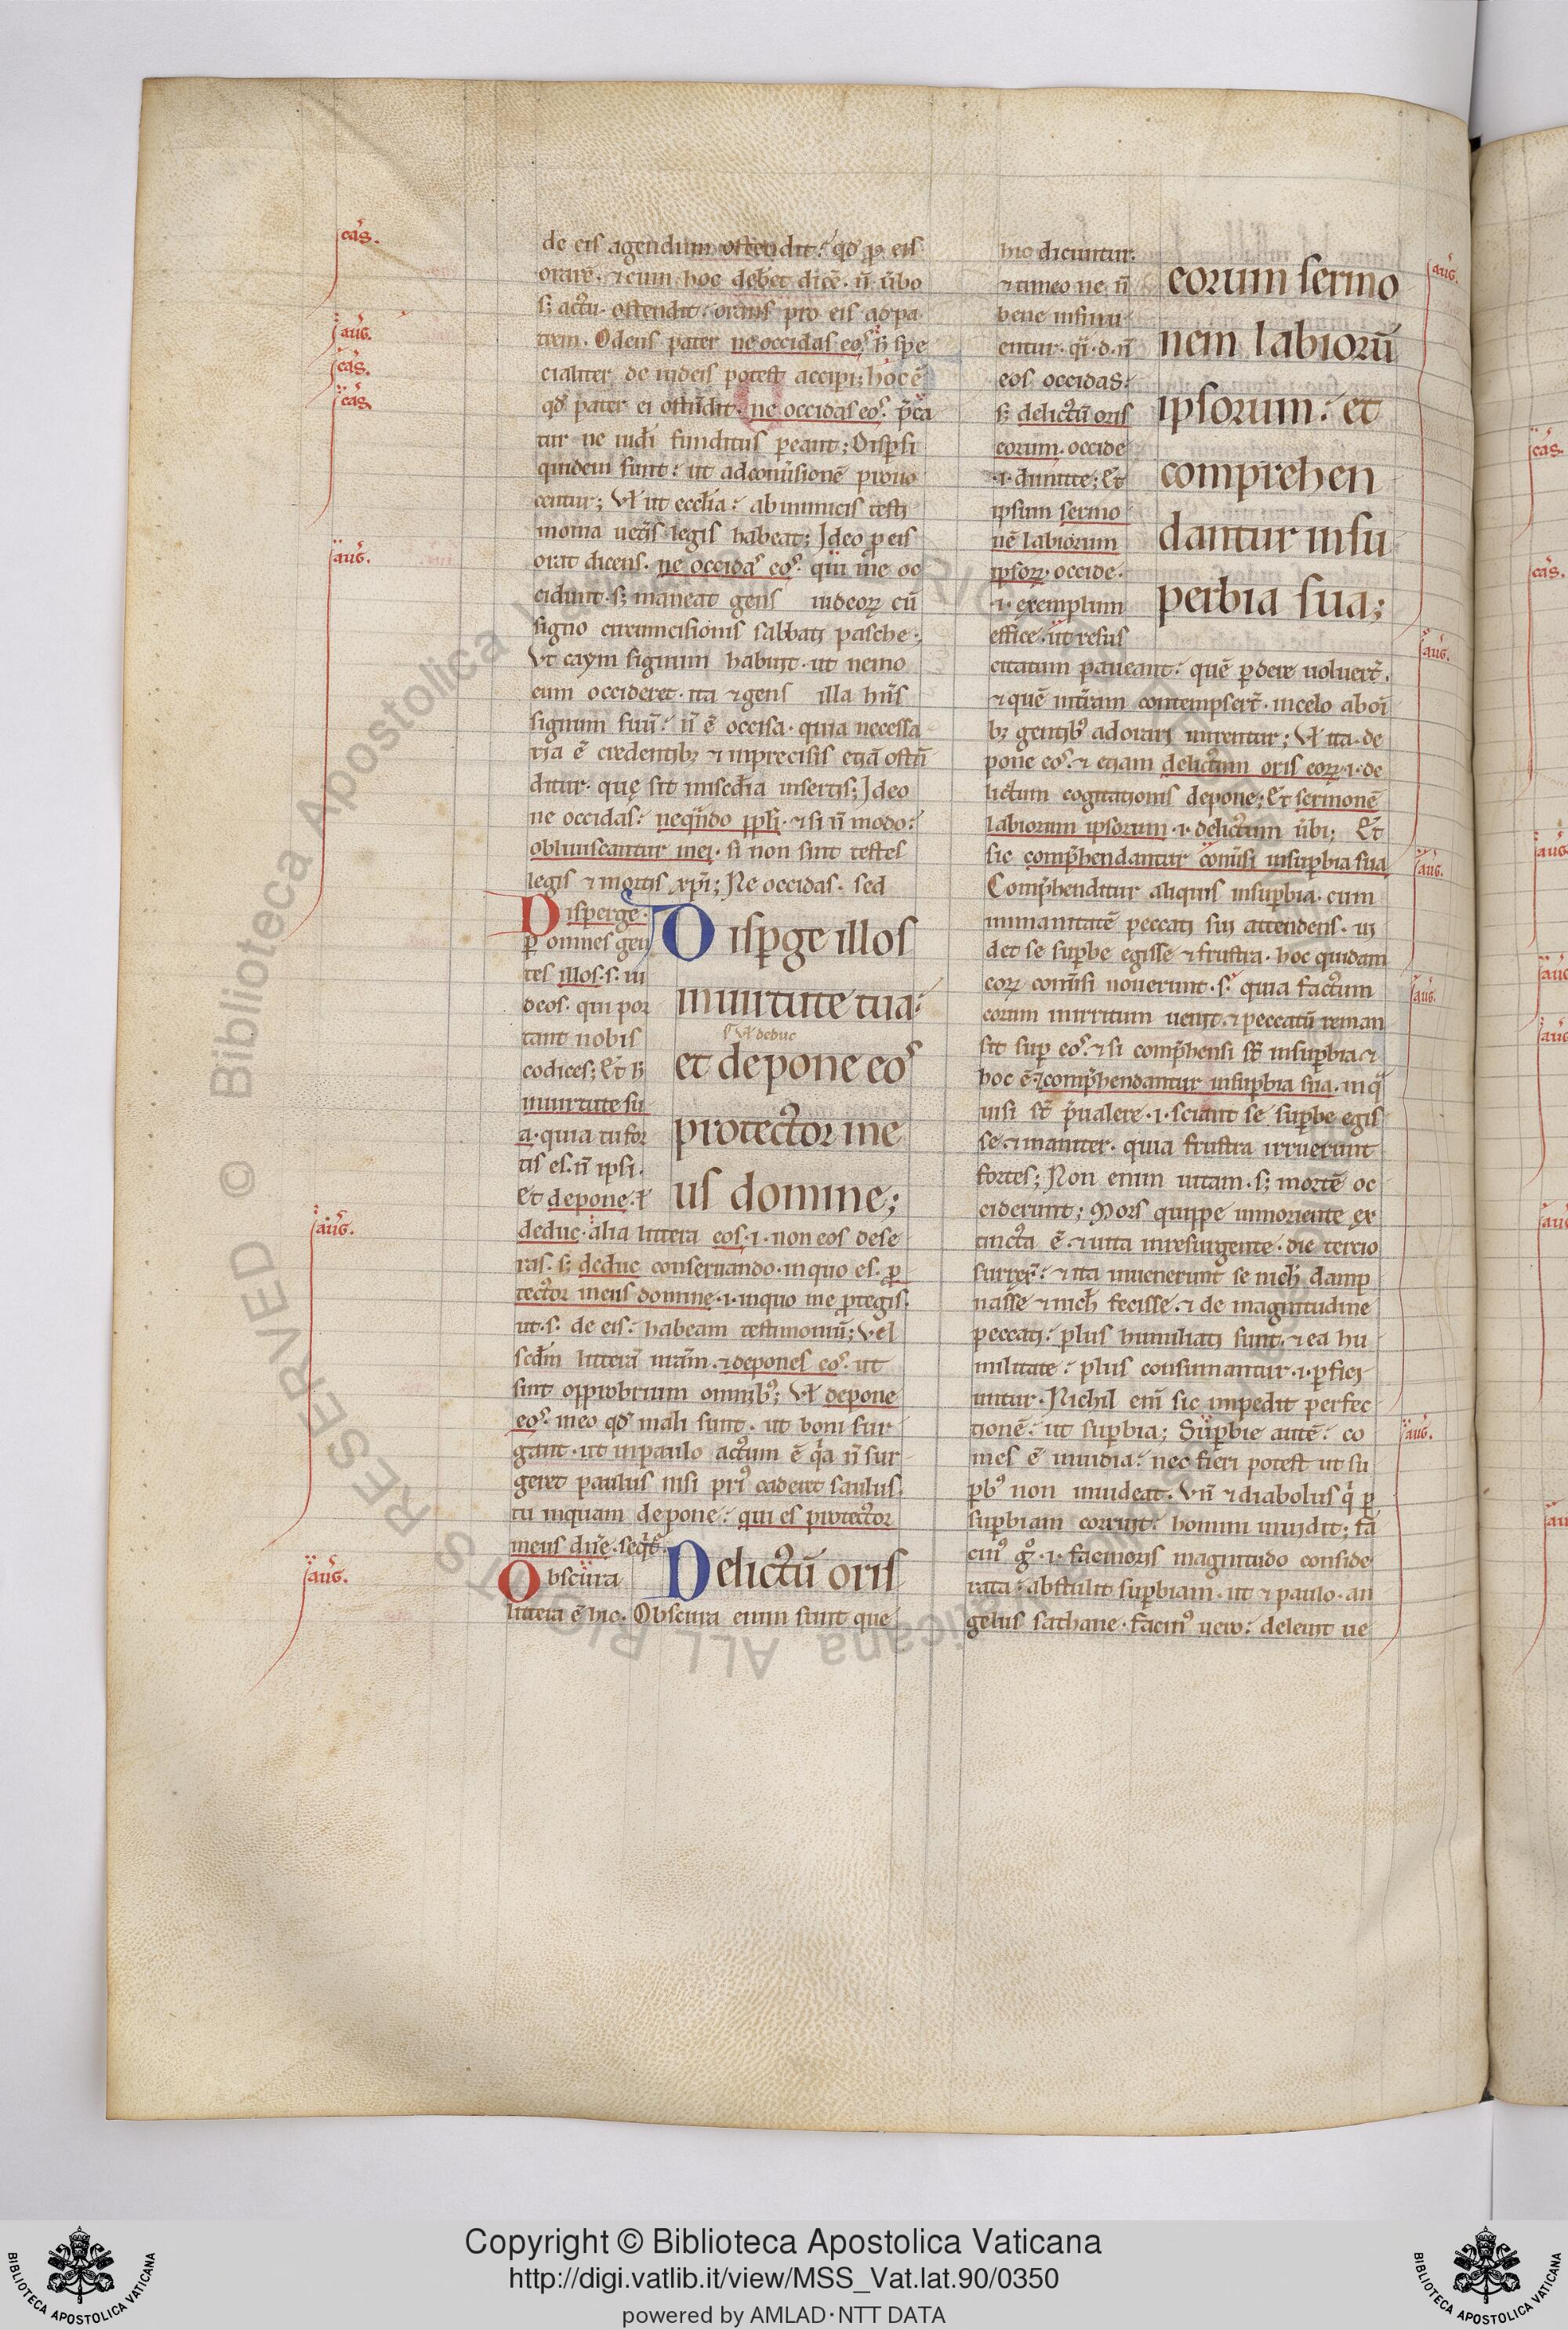 de eis agendum ostendit. qd̓ ꝓ eis
orare. ⁊ cum hoc deb̓et dic̄e. n̄ u̓bo
s; actu. ostendit. orans pro eis ad pa
trem. O deus pater ne occidas eos. h̓ spe
cialiter de iudeis potest accipi; hoc ē
qd̓ pater ei ostendit. ne occidas eos. p̄ca
tur ne iudi̓ funditus pereant; Disp̱si
quidem sunt. ut ad conu̓sionē prouo
centur; Vł ut eccl̓ia. ab inimicis testi
monia uet̓is legis habeat; Ideo ꝓ eis
orat dicens. ne occidas eos. qui me oc
cidunt. s; maneat gens iudeoꝝ cū
signo circumcisionis sabbati pasche.
Vt caym signum habuit. ut nemo
eum occideret. ita ⁊ gens illa hn̄s
signum suū. n̄ ē occisa. quia necessa
ria ē credentib; ⁊ in precisis etiā ostn̄
ditur. que sit mis̓cdi̓a insertis; Ideo
ne occidas. neqn̄do ppl̓i. ⁊ si n̄ modo.
obliuiscantur mei. si non sint testes
legis ⁊ mortis xp̄i; Ne occidas. sed
Disperge.
ꝑ omnes gen
tes illos. s. iu
deos. qui por
tant nobis
codices; Et h̓
in uirtute su
a. quia tu for
tis es. n̄ ipsi.
et depone. ł
Disꝑge illos
in uirtute tua.
ł deduc
et depone eos
protector me
us domine;
deduc. alia littera eos. i. non eos dese
ras. s; deduc conseruando. in quo es. ꝓ
tector meus domine. i. in quo me ꝓtegis.
ut. s. de eis. habeam testimoniū; Vel
scdm̄ litterā nr̄am. ⁊ depones eos. ut
sint opprobrium omnib;; Vł depone
eos. in eo qd̓ mali sunt. ut boni sur
gant. ut in paulo actum ē qa n̄ sur
geret paulus nisi pri̓ caderet saulus.
tu inquam depone. qui es protector
meus dn̄e. seqt̄.
Delictū oris
Obscura
littera ē hic. Obscura enim sunt que
hic dicuntur.
⁊ timeo ne n̄
bene insinu
entur. qi̓. d. n̄
eos occidas.
s; delictū oris
eorum. occide
.i. dimitte; Et
ipsum sermo
nē labiorum
ipsoꝝ. occide.
.i. exemplum
effice. ut resus
eorum sermo
nem labiorū
ipsorum. et
comprehen
dantur in su
perbia sua;
citatum paueant. quē ꝑdere uoluer̄t.
⁊ quē in tr̄am contempser̄t. in celo ab oi̓
b; gentib; adorari mirentur; Vł ita. de
pone eos. ⁊ etiam delictum oris eoꝝ. i. de
lictum cogitationis depone; Et sermonē
labiorum ipsorum. i. delictum u̓bi; Et
sic comp̄hendantur conu̓si in suꝑbia sua
Comp̄henditur aliquis in suꝑbia. cum
immanitatē peccati sui attendens. ui
det se suꝑbe egisse ⁊ frustra. hoc quidam
eoꝝ conu̓si nouerunt. s. quia factum
eorum in irritum uenit. ⁊ peccatū reman
sit suꝑ eos. ⁊ si comp̄hensi st̄ in suꝑbia ⁊
hoc ē. ⁊ comp̄hendantur in suꝑbia sua. in q̄
uisi st̄ p̄ualere. i. sciant se suꝑbe egis
se. ⁊ inaniter. quia frustra irruerunt
fortes; Non enim uitam. s; mortē oc
ciderunt; Mors quippe in moriente ex
tincta ē. ⁊ uita in resurgente. die tercio
surrex̄. ⁊ ita inuenerunt se nich̓ damp
nasse ⁊ nich̓ fecisse. ⁊ de magnitudine
peccati. plus humiliati sunt. ⁊ ea hu
militate. plus consumantur. i. ꝑfici
untur. Nichil eni̓ sic impedit perfec
tionē. ut suꝑbia; Suꝑbie autē. co
mes ē inuidia. nec fieri potest ut su
ꝑb; non inuideat. Vn̄ ⁊ diabolus qi̓ ꝑ
suꝑbiam corruit. homini inuidit; fa
cin; g̓. i. facinoris magnitudo conside
rata. abstulit suꝑbiam. ut ⁊ paulo. an
gelus sathane. facin; uero. deleuit ue
cas.
aug.
cas.
cas.
aug.
aug.
aug.
aug.
aug.
aug.
aug.
aug.
Copyright © Biblioteca Apostolica Vaticana
http://digi.vatlib.it/view/MSS_Vat.lat.90/0350
powered by AMLAD·NTT DATA